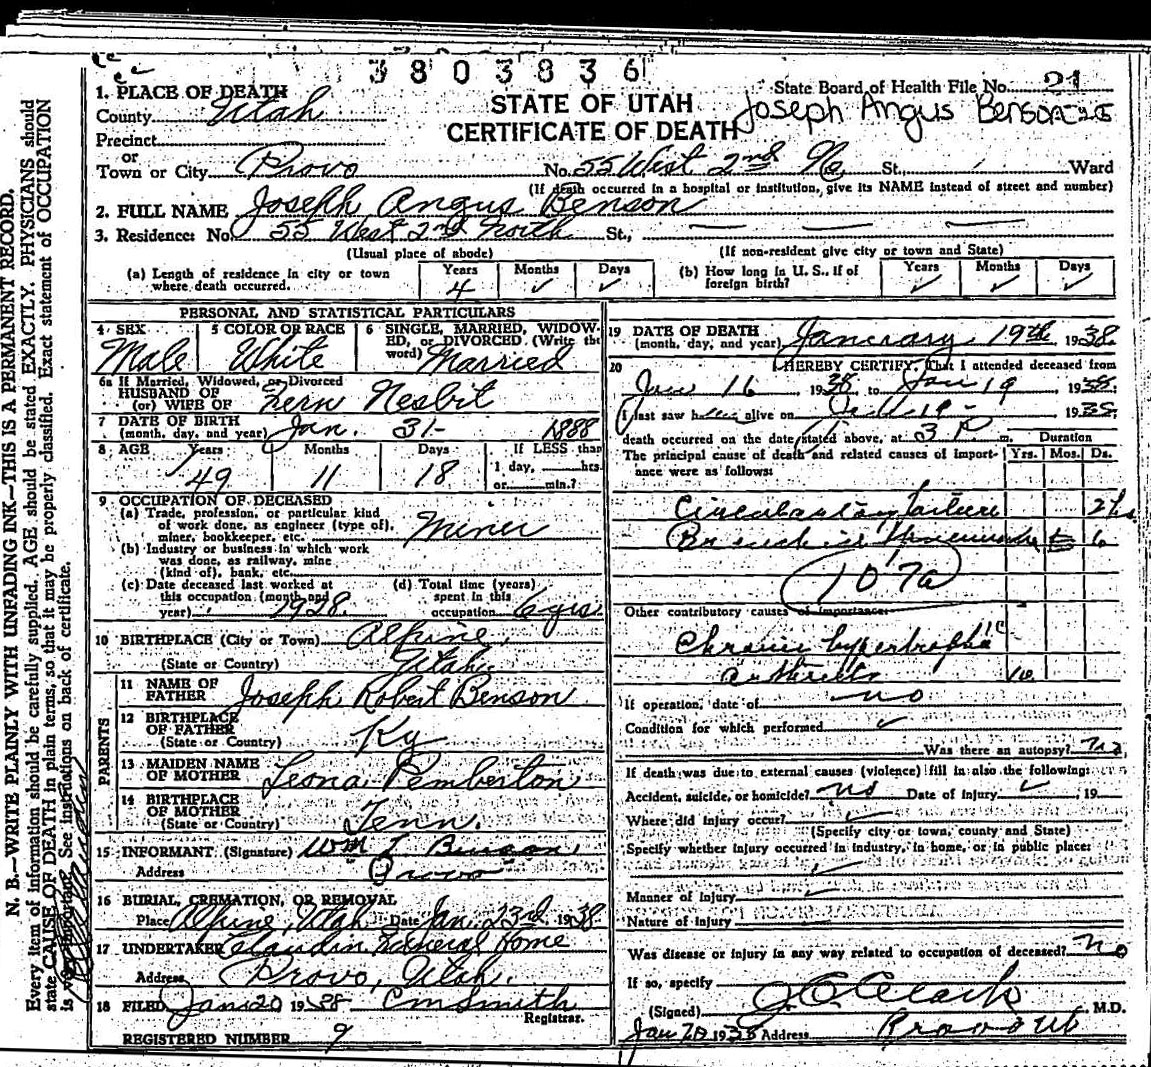 3803836
1. PLACE OF DEATH
State Board of Health File No. 21
County Utah
STATE OF UTAH
Joseph Angus Benson
Precinct
CERTIFICATE OF DEATH
or
Town or City Provo No. 55 West 2nd No. St., Ward
(If death occurred in a hospital or institution, give its NAME instead of street and number)
2. FULL NAME Joseph Angus Benson
3. Residence: No. 55 West 2nd North St.,
(Usual place of abode) (If non-resident give city or town and State)
(a) Length of residence in city or town where death occurred. Years 4 Months ✓ Days ✓
(b) How long in U. S., if of foreign birth? Years ✓ Months ✓ Days ✓
PERSONAL AND STATISTICAL PARTICULARS
4 SEX Male
5 COLOR OR RACE White
6 SINGLE, MARRIED, WIDOWED, or DIVORCED. (Write the word) Married
6a If Married, Widowed, or Divorced
HUSBAND OF
(or) WIFE OF Fern Nesbit
7 DATE OF BIRTH
(month, day, and year) Jan. 31- 1888
8 AGE Years 49 Months 11 Days 18 If LESS than
1 day, hrs.
or min.?
9 OCCUPATION OF DECEASED
(a) Trade, profession, or particular kind
of work done, as engineer (type of),
miner, bookkeeper, etc. Miner
(b) Industry or business in which work
was done, as railway, mine
(kind of), bank, etc.
(c) Date deceased last worked at
this occupation (month and
year) 1928.
(d) Total time (years)
spent in this
occupation 6 yrs.
10 BIRTHPLACE (City or Town) Alpine,
(State or Country) Utah.
PARENTS
11 NAME OF
FATHER Joseph Robert Benson
12 BIRTHPLACE
OF FATHER
(State or Country) Ky
13 MAIDEN NAME
OF MOTHER Leona Pemberton
14 BIRTHPLACE
OF MOTHER
(State or Country) Tenn.
15 INFORMANT (Signature) Wm T Benson,
Address Provo
16 BURIAL, CREMATION, OR REMOVAL
Place Alpine, Utah Date Jan. 23rd 1938
17 UNDERTAKER Claudin Funeral Home
Address Provo, Utah.
18 FILED Jan 20 1938 C M Smith
Registrar.
REGISTERED NUMBER 9
19 DATE OF DEATH
(month, day, and year) January 19th 1938.
20 I HEREBY CERTIFY, That I attended deceased from
Jan 16, 1938, to Jan 19 1938.
I last saw h alive on 19- 1938,
death occurred on the date stated above, at 3 P. m. Duration
The principal cause of death and related causes of importance were as follows: Yrs. Mos. Ds.
Circulatory failure 2 hs
Bronchial Pneumonia 6
107a
Other contributory causes of importance:
Chronic hypertrophic
arthritis 10.
If operation, date of no
Condition for which performed ✓
Was there an autopsy? No
If death was due to external causes (violence) fill in also the following:
Accident, suicide, or homicide? no Date of injury ✓, 19
Where did injury occur? ✓
(Specify city or town, county and State)
Specify whether injury occurred in industry, in home, or in public place:
✓
Manner of injury ✓
Nature of injury
Was disease or injury in any way related to occupation of deceased? No
If so, specify
(Signed) J. C. Clark M.D.
Jan 20 1938 Address Provo Ut
N. B.—WRITE PLAINLY WITH UNFADING INK—THIS IS A PERMANENT RECORD.
Every item of information should be carefully supplied. AGE should be stated EXACTLY. PHYSICIANS should
state CAUSE OF DEATH in plain terms, so that it may be properly classified. Exact statement of OCCUPATION
is very important. See instructions on back of certificate.